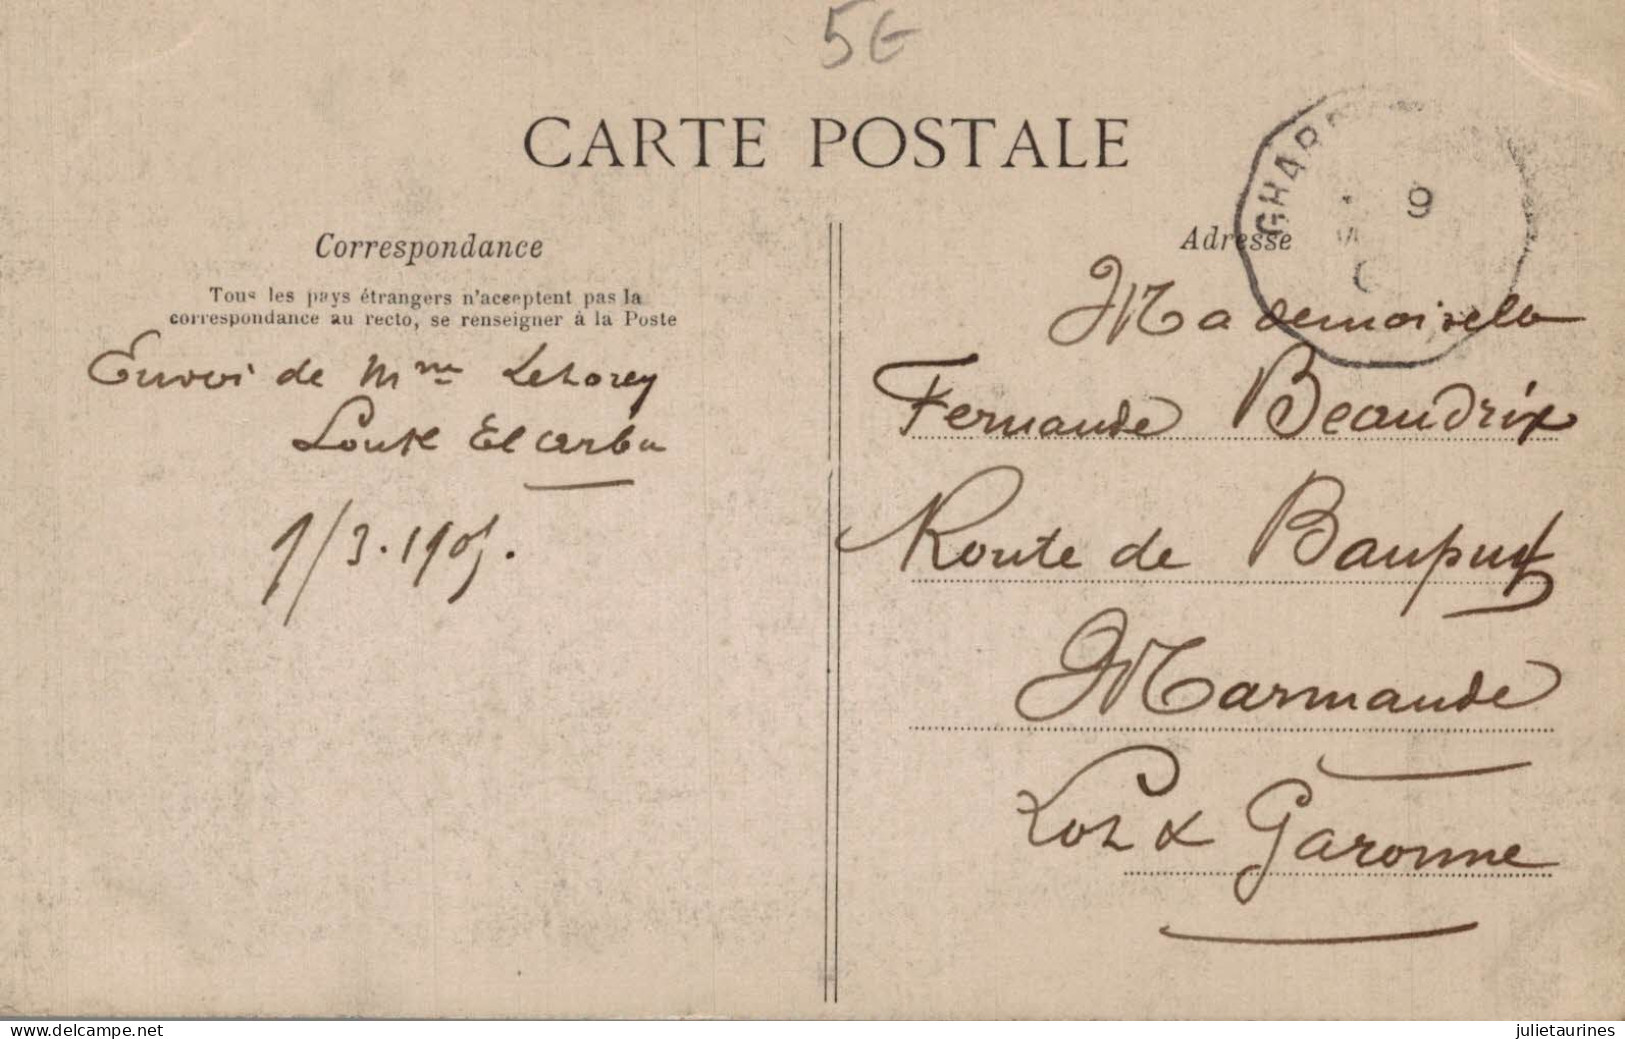 5€
CARTE POSTALE
Correspondance
Tous les pays étrangers n'acceptent pas la
correspondance au recto, se renseigner à la Poste
Envoi de Mme Lehorey
Souk El Arba
9/3.1905.
Adresse
CHAR
9
Mademoiselle
Fernande Beaudrix
Route de Baupuy
Marmande
Lot & Garonne
www.delcampe.net
julietaurines